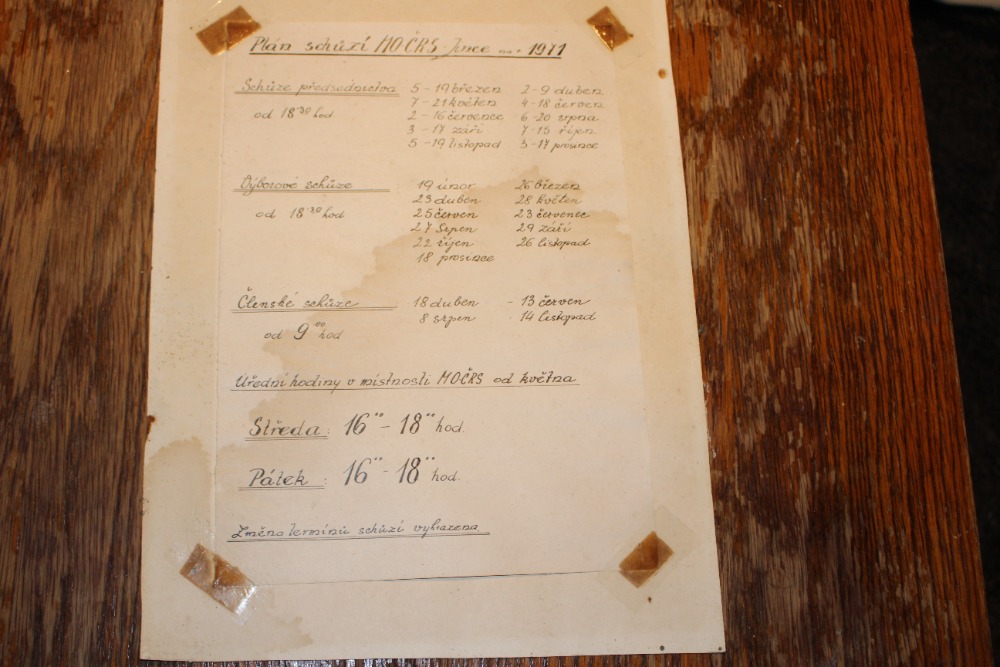 Plán schůzí MOČRS Jince na r. 1971
Schůze předsednictva 5 - 19 březen 2 - 9 duben
7 - 21 květen 4 - 18 červen
od 18³⁰ hod 2 - 16 července 6 - 20 srpna
3 - 17 září 7 - 15 říjen
5 - 19 listopad 3 - 17 prosince
Výborové schůze 19 únor 26 březen
23 duben 28 květen
od 18³⁰ hod 25 červen 23 červenec
27 Srpen 29 září
22 říjen 26 listopad
18 prosince
Členské schůze 18 duben - 13 červen
8 srpen - 14 listopad
od 9⁰⁰ hod
Úřední hodiny v místnosti MOČRS od května
Středa: 16⁰⁰ - 18⁰⁰ hod.
Pátek: 16⁰⁰ - 18⁰⁰ hod.
Změna termínů schůzí vyhrazena